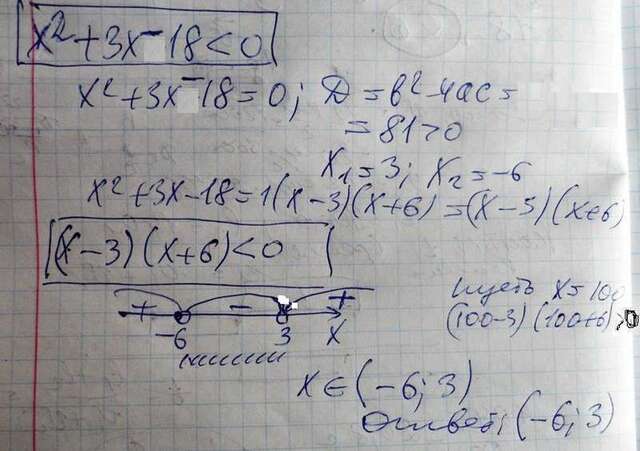 x² + 3x - 18 < 0
x² + 3x - 18 = 0; D = b² - 4ac =
= 81 > 0
x₁ = 3; x₂ = -6
x² + 3x - 18 = 1(x - 3)(x + 6) = (x - 3)(x + 6)
(x - 3)(x + 6) < 0
+ - +
-6 3 x
пусть x = 100
(100-3)(100+6) > 0
x ∈ (-6; 3)
Ответ: (-6; 3)